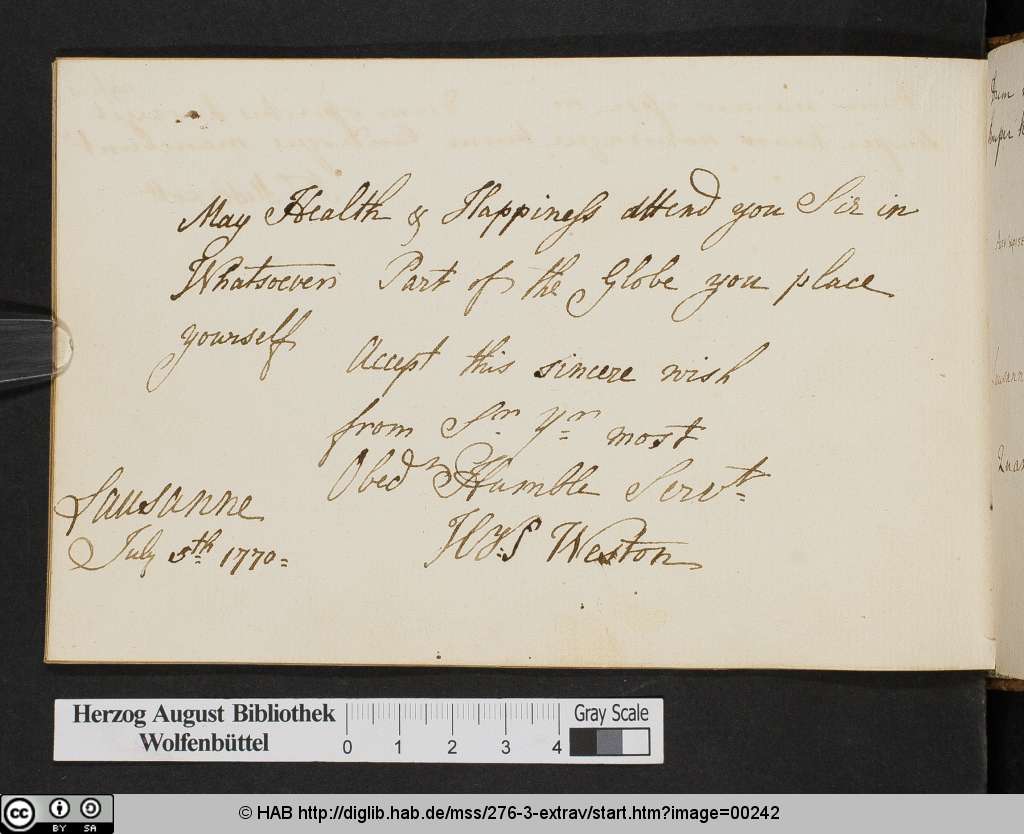 May Health & Happiness attend you Sir in
Whatsoever Part of the Globe you place
yourself
Accept this sincere wish
from Sr Yr most
Obedt Humble Servt
Lausanne
July 5th 1770
Weston
Herzog August Bibliothek
Wolfenbüttel
0 1 2 3 4
Gray Scale
cc BY SA
© HAB http://diglib.hab.de/mss/276-3-extrav/start.htm?image=00242